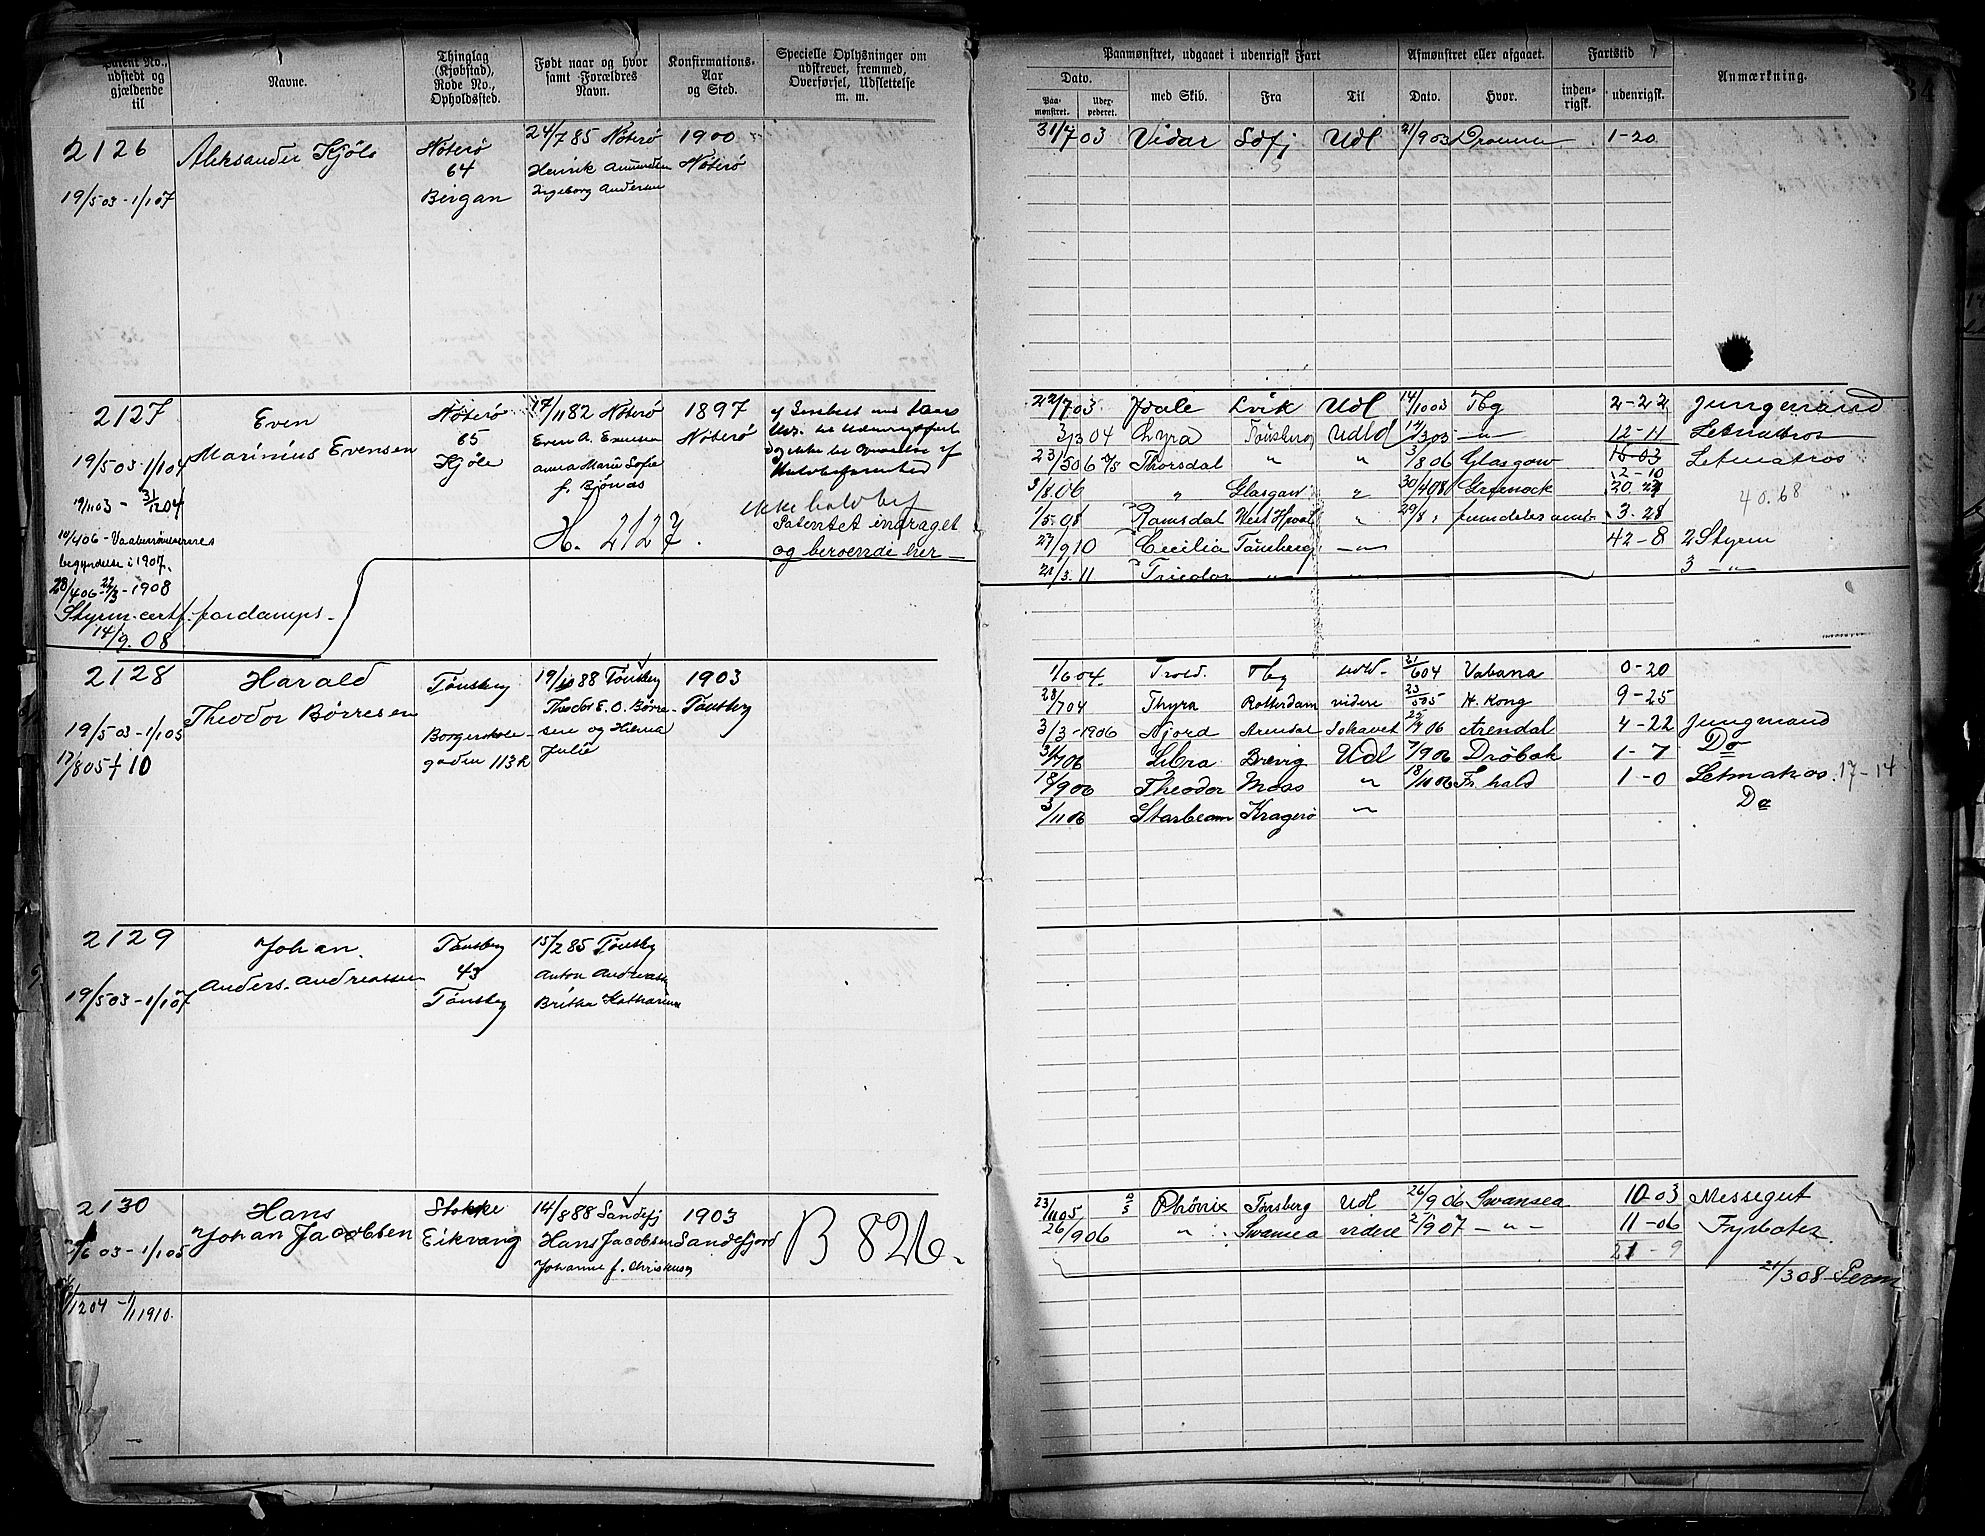 Patent No., udstedt og gjældende til
Navne.
Thinglag (Kjøbstad), Rode No., Opholdssted.
Født naar og hvor samt Forældres Navn.
Konfirmations-Aar og Sted.
Specielle Oplysninger om udskrevet, fremmed, Overførsel, Udslettelse m. m.
Paamønstret, udgaaet i udenrigsk Fart
Dato.
Paa-mønstret.
med Skib.
Fra
Til
Afmønstret eller afgaaet.
Dato.
Hvor.
Fartstid
inden-rigsk.
udenrigsk.
Anmærkning.
34
2126
19/5 03 - 1/1 07
Aleksander Kjöle
Nöterö
64
Bergan
24/7 85 Nöterö
Henrik Amundsen
Ingeborg Andersen
1900
Nöterö
31/7 03 Vidar Sdfj Udl 21/9 03 Drammen 1-20
2127
19/5 03 - 1/1 07
19/11 03 - 31/12 04
10/4 06 - Vaabenövelsernes
begyndelse i 1907.
28/4 06 - 22/3 - 1908
Styrm. certf. fordamps.
14/9. 08
Even
Marinius Evensen
Nöterö
65
Kjöle
17/11 82 Nöterö
Even A. Evensen
Anna Marie Sofie
f. Björnås
H. 2127
1897
Nöterö
ikke halv bef
Patentet indraget
og beroende her
22/7 03 Idale Lvik Udl 14/10 03 Tbg 2-22 Jungmand
3/3 04 Lyra Tönsberg Udld 12-11 Letmatros
Thorsdal " " 3/8 06 Glasgow 15-03 Letmatros
2-10
3/8.06 " Glasgow " 30/4 08 Greenock 20.27
40.68
1/5.08 Ramsdal West Hpool " 29/8 3-28
27/9 10 Cecilia Tönsberg -"- 42-8 2 Styrm
21/3. 11 Tricolor -"- 3 -"-
2128
19/5 03 - 1/1 05
17/8 05 † 10
Harald
Theodor Börresen
Tönsberg
Borgerskole-
gaden 113 R
19/10 88 Tönsberg
Theodor E. O. Börre-
sen og Helena
Julie
1903
Tönsberg
1/6 04. Trold. Tbg udld. 21/6 04 Vabana 0-20
28/7 04 Thyra Rotterdam videre 23/5 05 H. Kong 9-25
3/3-1906 Njord Arendal Ishavet 25/7 06 Arendal 4-22 Jungmand
31/7 06 Libra Brevig Udl 7/9 06 Dröbak 1-7 Do
18/9 06 Theodor Moss " 18/10 06 Fr. hald 1-0 Letmatros. 17-14
3/11 06 Starbeam Kragerö " Do
2129
19/5 03 - 1/1 07
Johan.
Anders. Andreassen
Tönsberg
43
Tönsberg
15/2 85 Tönsberg
Anton Andreassen
Britha Katharina
2130
2/6 03 - 1/1 05
/12 04 - 1/1 1910.
Hans
Johan Jacobsen
Stokke
Eikvang
14/8 88 Sandefj
Hans Jacobsen
Johanne f. Christensen
1903
Sandefjord
B 826.
23/11 05 D/S Phönix Tönsberg Udl 26/9 06 Swansea 10-03 Messegut
26/9 06 " Swansea videre 2/9 07 -"- 11-06 Fyrböter.
21-9
21/3 08 Perm